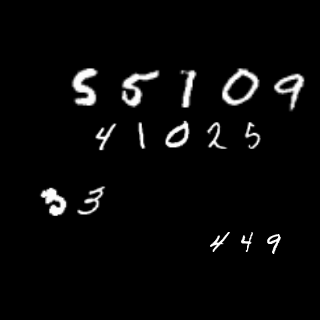 55109
41025
33
449